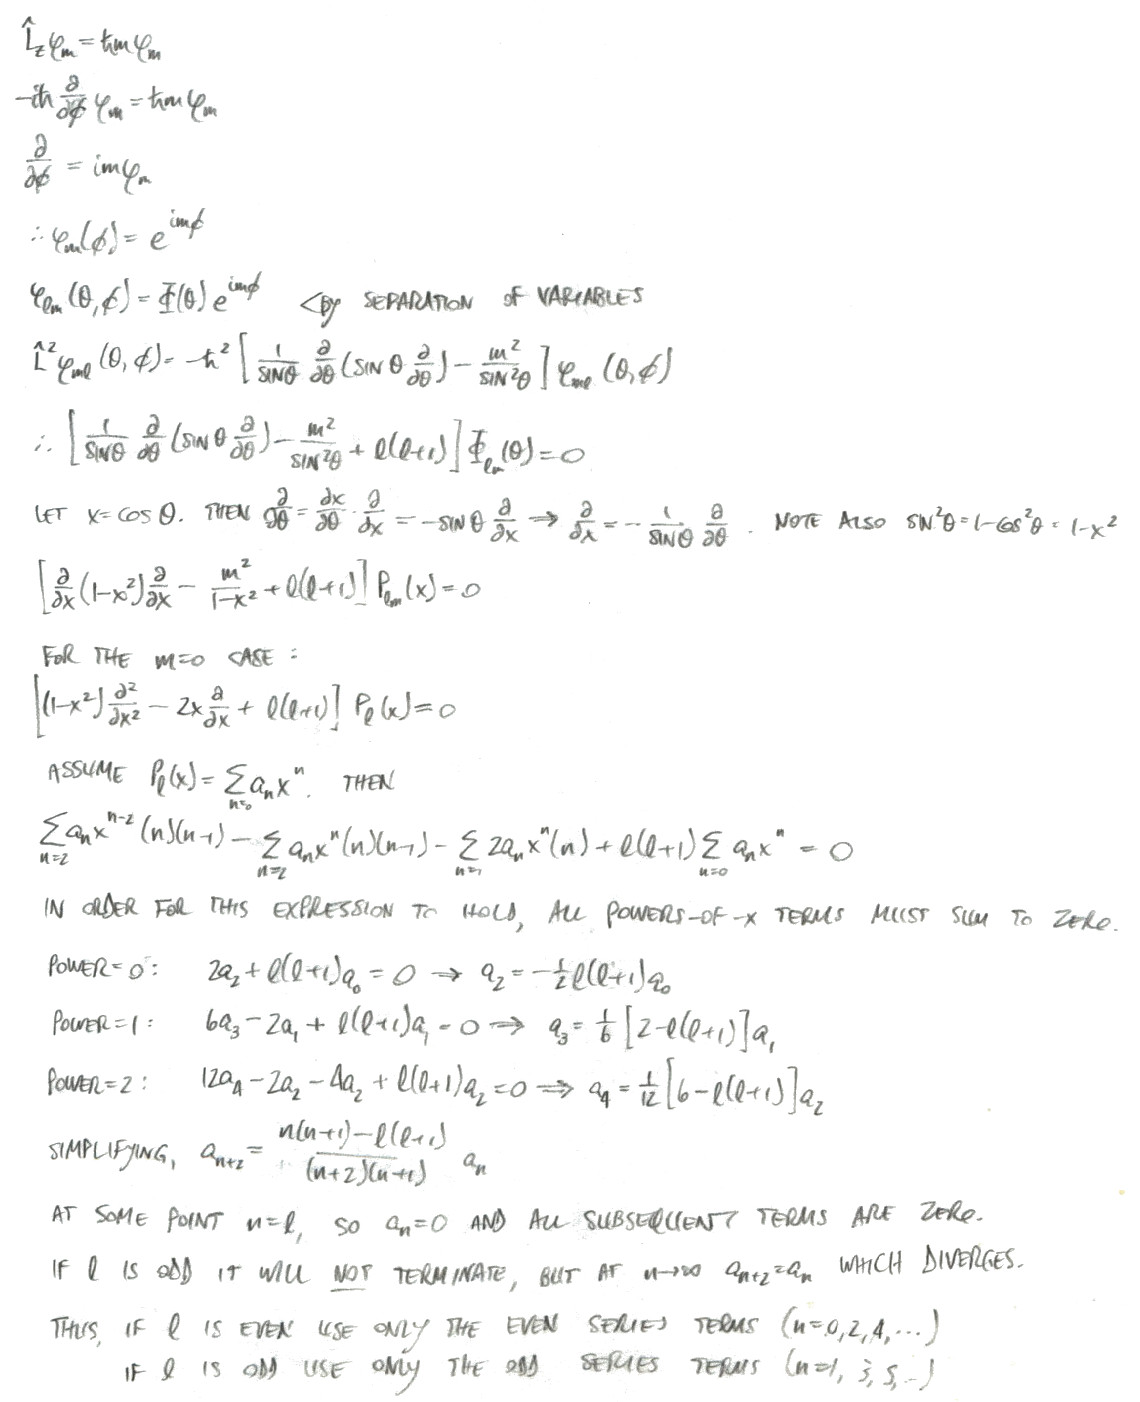 L̂_z φ_m = ħm φ_m
-iħ ∂/∂ϕ φ_m = ħm φ_m
∂/∂ϕ = im φ_m
∴ φ_m(ϕ) = e^{imϕ}
φ_{lm}(θ,ϕ) = Φ(θ) e^{imϕ} < BY SEPARATION OF VARIABLES
L̂² φ_{ml}(θ,ϕ) = -ħ² [ 1/SINθ ∂/∂θ (SINθ ∂/∂θ) - m²/SIN²θ ] φ_{ml}(θ,ϕ)
∴ [ 1/SINθ ∂/∂θ (SINθ ∂/∂θ) - m²/SIN²θ + l(l+1) ] Φ_{lm}(θ) = 0
LET x = COS θ. THEN ∂/∂θ = ∂x/∂θ · ∂/∂x = -SINθ ∂/∂x ⇒ ∂/∂x = - 1/SINθ ∂/∂θ . NOTE ALSO SIN²θ = 1-COS²θ = 1-x²
[ ∂/∂x (1-x²) ∂/∂x - m²/(1-x²) + l(l+1) ] P_{lm}(x) = 0
FOR THE m=0 CASE :
[ (1-x²) ∂²/∂x² - 2x ∂/∂x + l(l+1) ] P_l(x) = 0
ASSUME P_l(x) = Σ_{n=0} a_n x^n. THEN
Σ_{n=2} a_n x^{n-2} (n)(n-1) - Σ_{n=2} a_n x^n (n)(n-1) - Σ_{n=1} 2a_n x^n (n) + l(l+1) Σ_{n=0} a_n x^n = 0
IN ORDER FOR THIS EXPRESSION TO HOLD, ALL POWERS-OF-X TERMS MUST SUM TO ZERO.
POWER=0: 2a_2 + l(l+1)a_0 = 0 ⇒ a_2 = -½ l(l+1)a_0
POWER=1: 6a_3 - 2a_1 + l(l+1)a_1 = 0 ⇒ a_3 = 1/6 [2-l(l+1)]a_1
POWER=2: 12a_4 - 2a_2 - 4a_2 + l(l+1)a_2 = 0 ⇒ a_4 = 1/12 [6-l(l+1)]a_2
SIMPLIFYING, a_{n+2} = (n(n+1)-l(l+1))/((n+2)(n+1)) a_n
AT SOME POINT n=l, SO a_n=0 AND ALL SUBSEQUENT TERMS ARE ZERO.
IF l IS ODD IT WILL NOT TERMINATE, BUT AT n→∞ a_{n+2}=a_n WHICH DIVERGES.
THUS, IF l IS EVEN USE ONLY THE EVEN SERIES TERMS (n=0,2,4,...)
IF l IS ODD USE ONLY THE ODD SERIES TERMS (n=1,3,5,..)